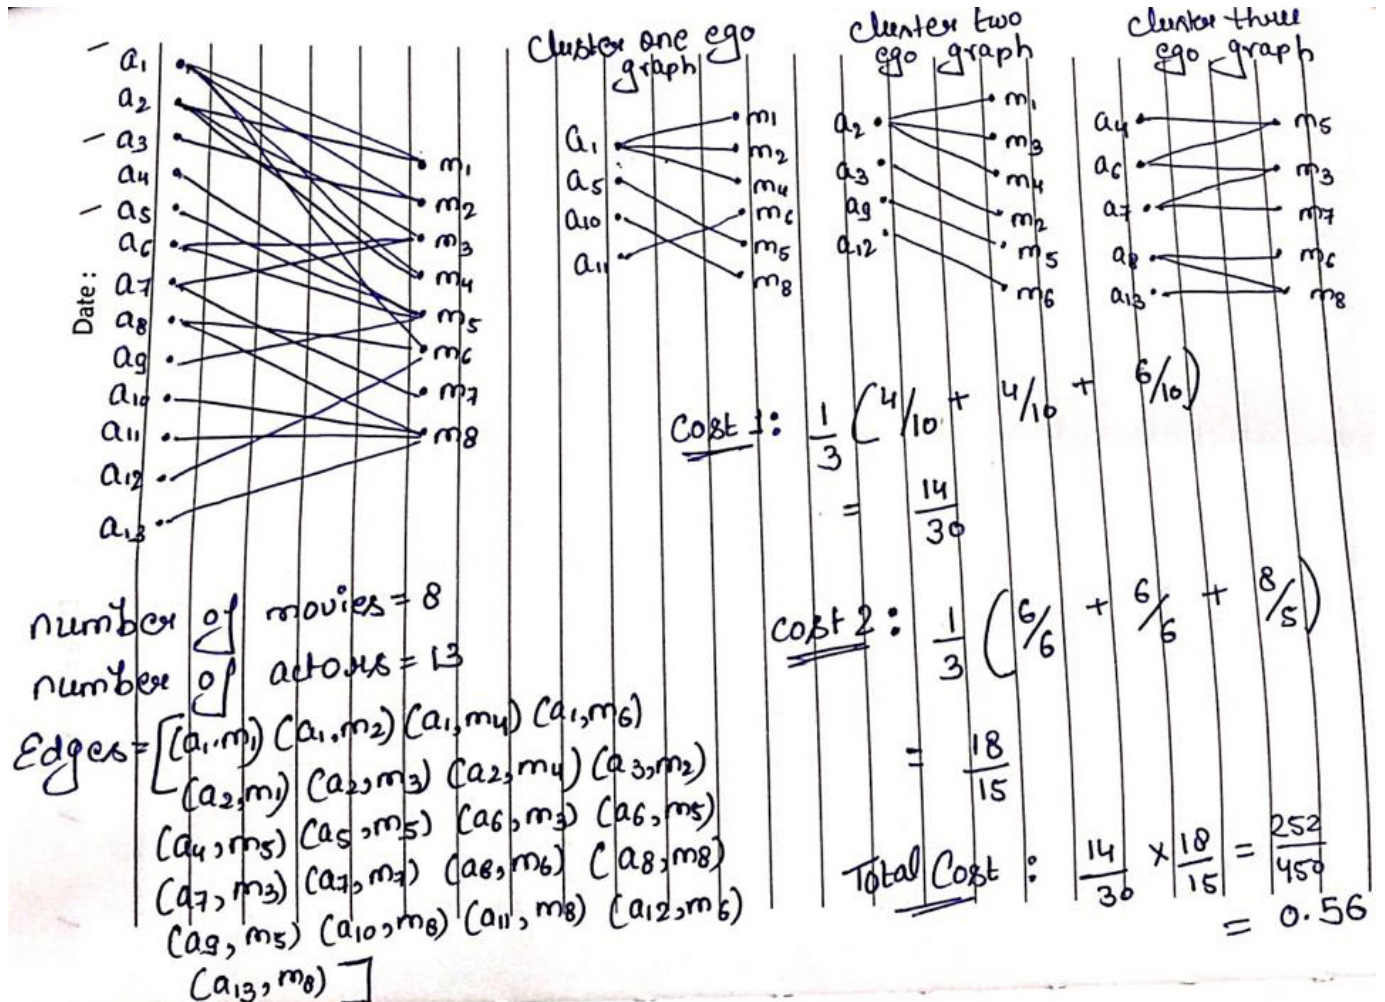 Date :
a1
a2
a3
a4
a5
a6
a7
a8
a9
a10
a11
a12
a13
m1
m2
m3
m4
m5
m6
m7
m8
cluster one ego
graph
a1
a5
a10
a11
m1
m2
m4
m6
m5
m8
cluster two
ego graph
a2
a3
a9
a12
m1
m3
m4
m2
m5
m6
cluster three
ego graph
a4
a6
a7
a8
a13
m5
m3
m7
m6
m8
cost 1: 1/3 (4/10 + 4/10 + 6/10)
= 14/30
cost 2: 1/3 (6/6 + 6/6 + 8/5)
= 18/15
Total Cost : 14/30 × 18/15 = 252/450
= 0.56
number of movies = 8
number of actors = 13
Edges = [(a1,m1) (a1,m2) (a1,m4) (a1,m6)
(a2,m1) (a2,m3) (a2,m4) (a3,m2)
(a4,m5) (a5,m5) (a6,m3) (a6,m5)
(a7,m3) (a7,m7) (a8,m6) (a8,m8)
(a9,m5) (a10,m8) (a11,m8) (a12,m6)
(a13,m8)]